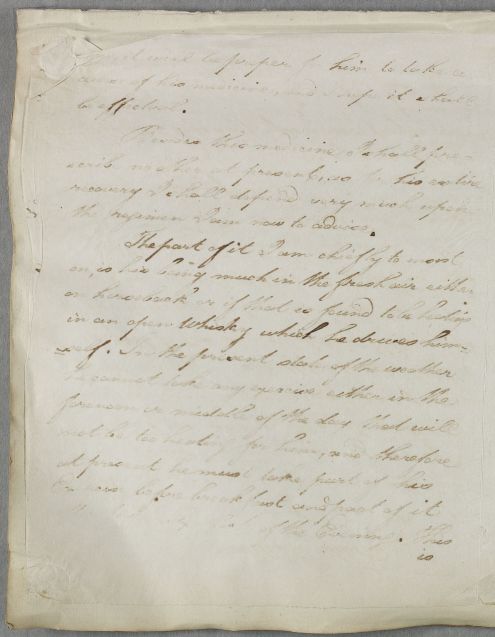 it will be proper for him to take a
of his medicine, and I hope it shall
be effectual.
Besides this medicine I shall pre-
scribe no other at present, as for his entire
recovery I shall depend very much upon
the regimen I am now to advise.
The part of it I am chiefly to insist
on, is his being much in the fresh air either
on horseback or if that is found to be heating
in an open Whisky which he drives him-
self. In the present state of the weather
he cannot take any exercise either in the
forenoon or middle of the day that will
not be too heating for him, and therefore
at present he must take part of his
Exercise before breakfast and part of it
of the Evening. This
is